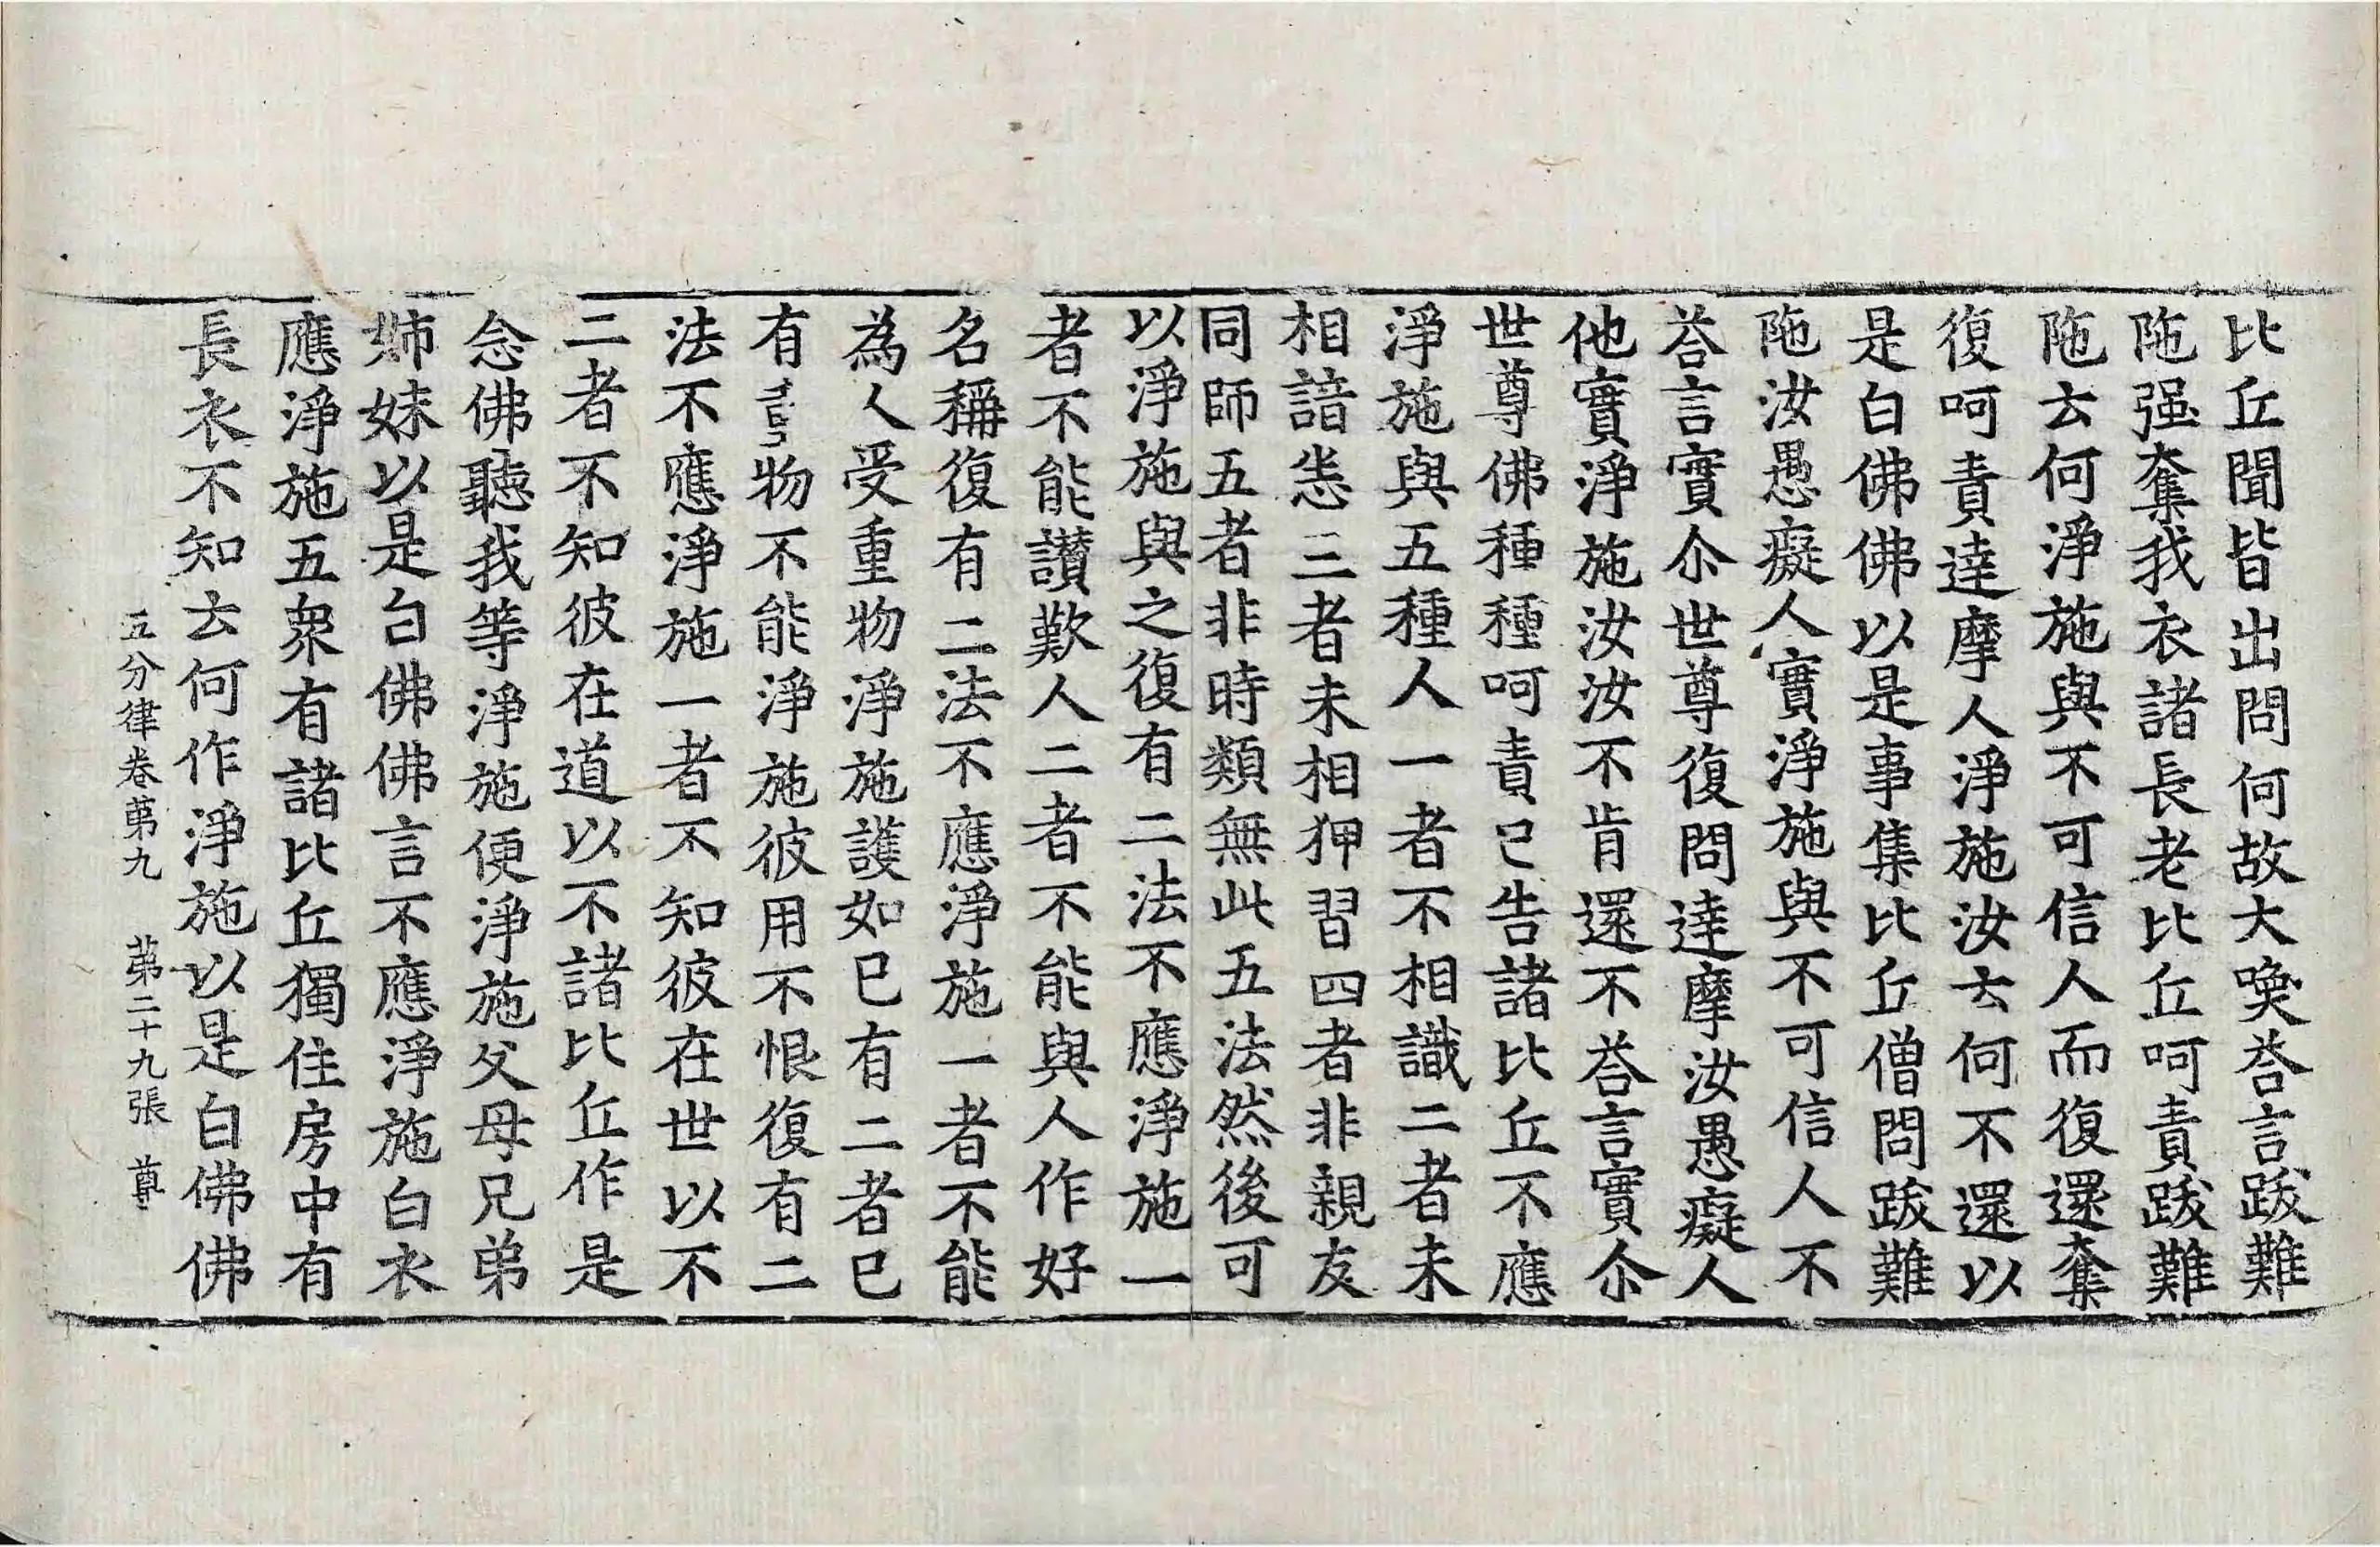 比丘聞皆出問何故大喚荅言跋難
陁强奪我衣諸長老比丘呵責跋難
陁云何淨施與不可信人而復還奪
復呵責達摩人淨施汝云何不還以
是白佛佛以是事集比丘僧問跋難
陁汝愚癡人實淨施與不可信人不
荅言實尒世尊復問達摩汝愚癡人
他實淨施汝汝不肯還不荅言實尒
世尊佛種種呵責已告諸比丘不應
淨施與五種人一者不相識二者未
相諳悉三者未相狎習四者非親友
同師五者非時類無此五法然後可
以淨施與之復有二法不應淨施一
者不能讚歎人二者不能與人作好
名稱復有二法不應淨施一者不能
為人受重物淨施護如已有二者已
有物不能淨施彼用不恨復有二
法不應淨施一者不知彼在世以不
二者不知彼在道以不諸比丘作是
念佛聽我等淨施便淨施父母兄弟
姉妹以是白佛佛言不應淨施白衣
應淨施五衆有諸比丘獨住房中有
長衣不知云何作淨施以是白佛佛
五分律卷苐九 苐二十九張 尊